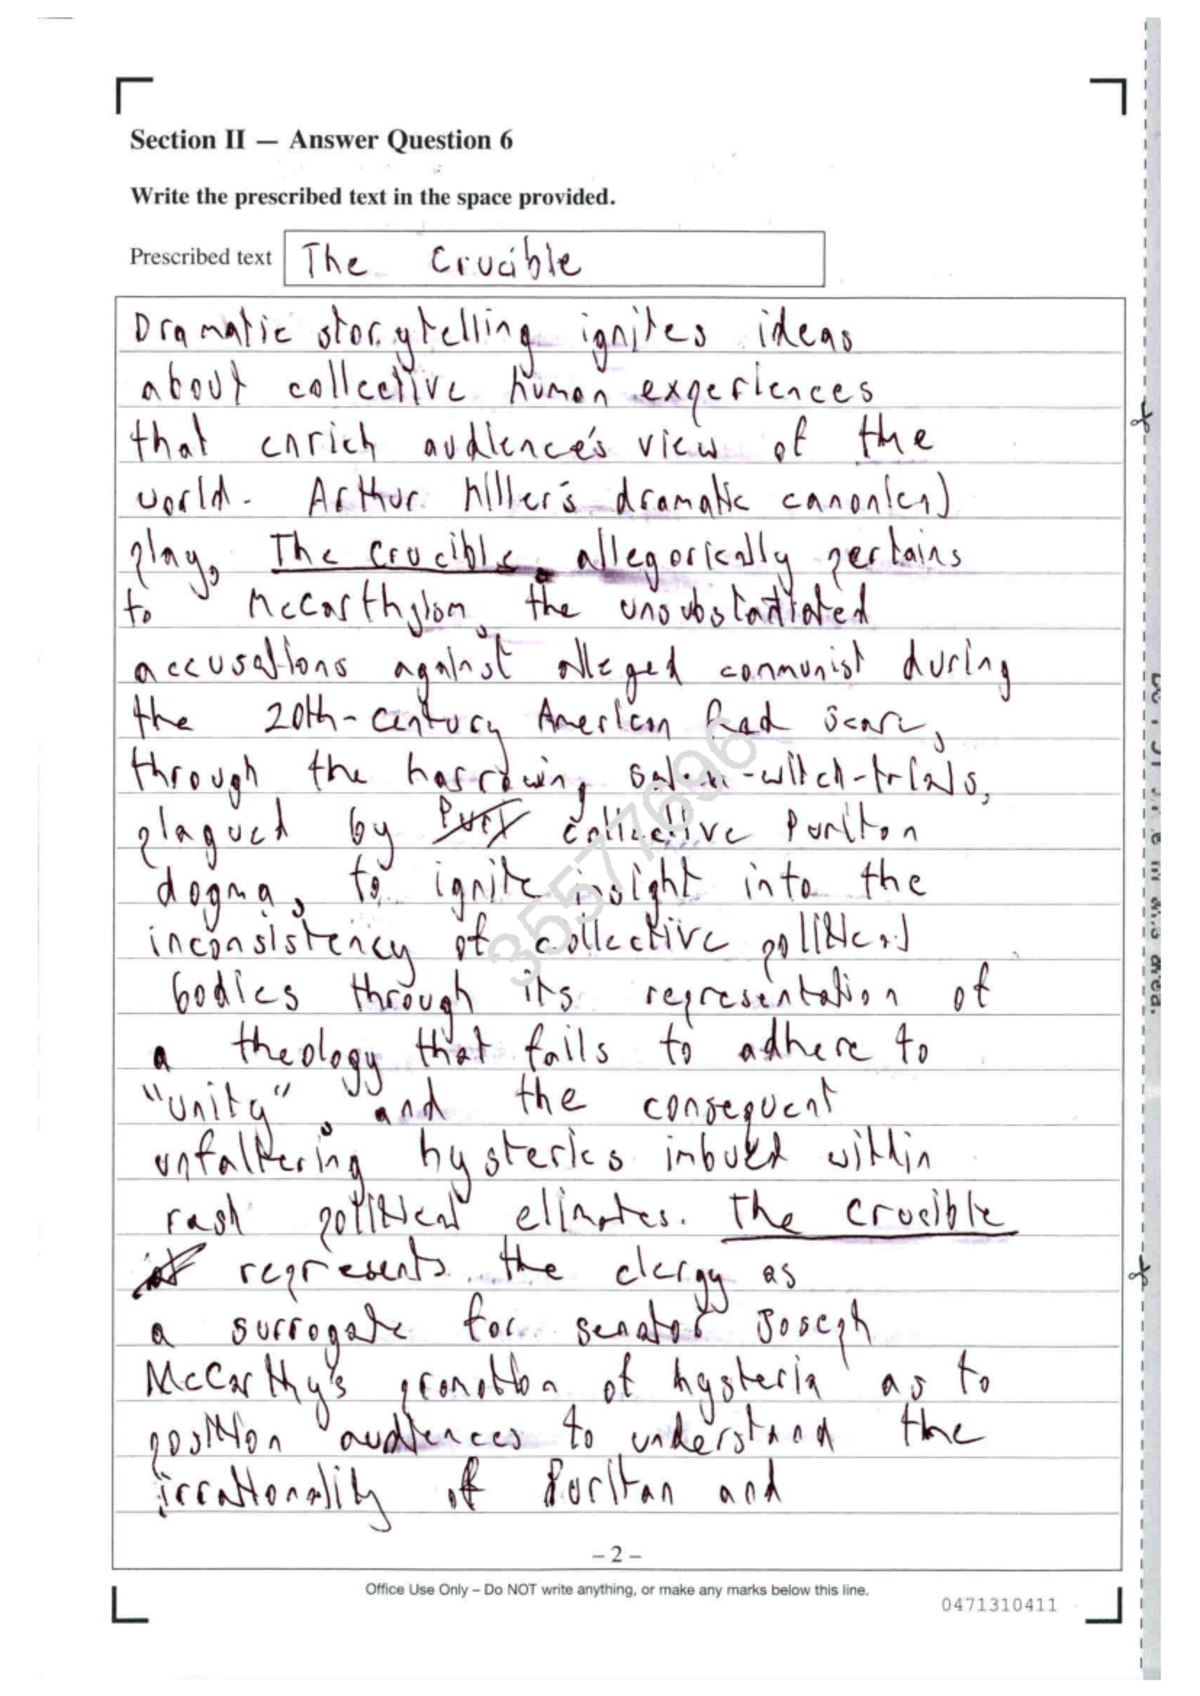 Section II — Answer Question 6
Write the prescribed text in the space provided.
Prescribed text The Crucible
Dramatic storytelling ignites ideas
about collective human experiences
that enrich audience's view of the
world. Arthur Miller's dramatic canonical
play, The Crucible, allegorically pertains
to McCarthyism, the unsubstantiated
accusations against alleged communist during
the 20th-century American Red Scare,
through the harrowing Salem-witch-trials,
plagued by collective Puritan
dogma, to ignite insight into the
inconsistency of collective political
bodies through its representation of
a theology that fails to adhere to
"unity", and the consequent
unfaltering hysterics imbued within
rash political climates. The Crucible
represents the clergy as
a surrogate for senator Joseph
McCarthy's promotion of hysteria as to
position audiences to understand the
irrationality of Puritan and
35577696
– 2 –
Office Use Only – Do NOT write anything, or make any marks below this line.
0471310411